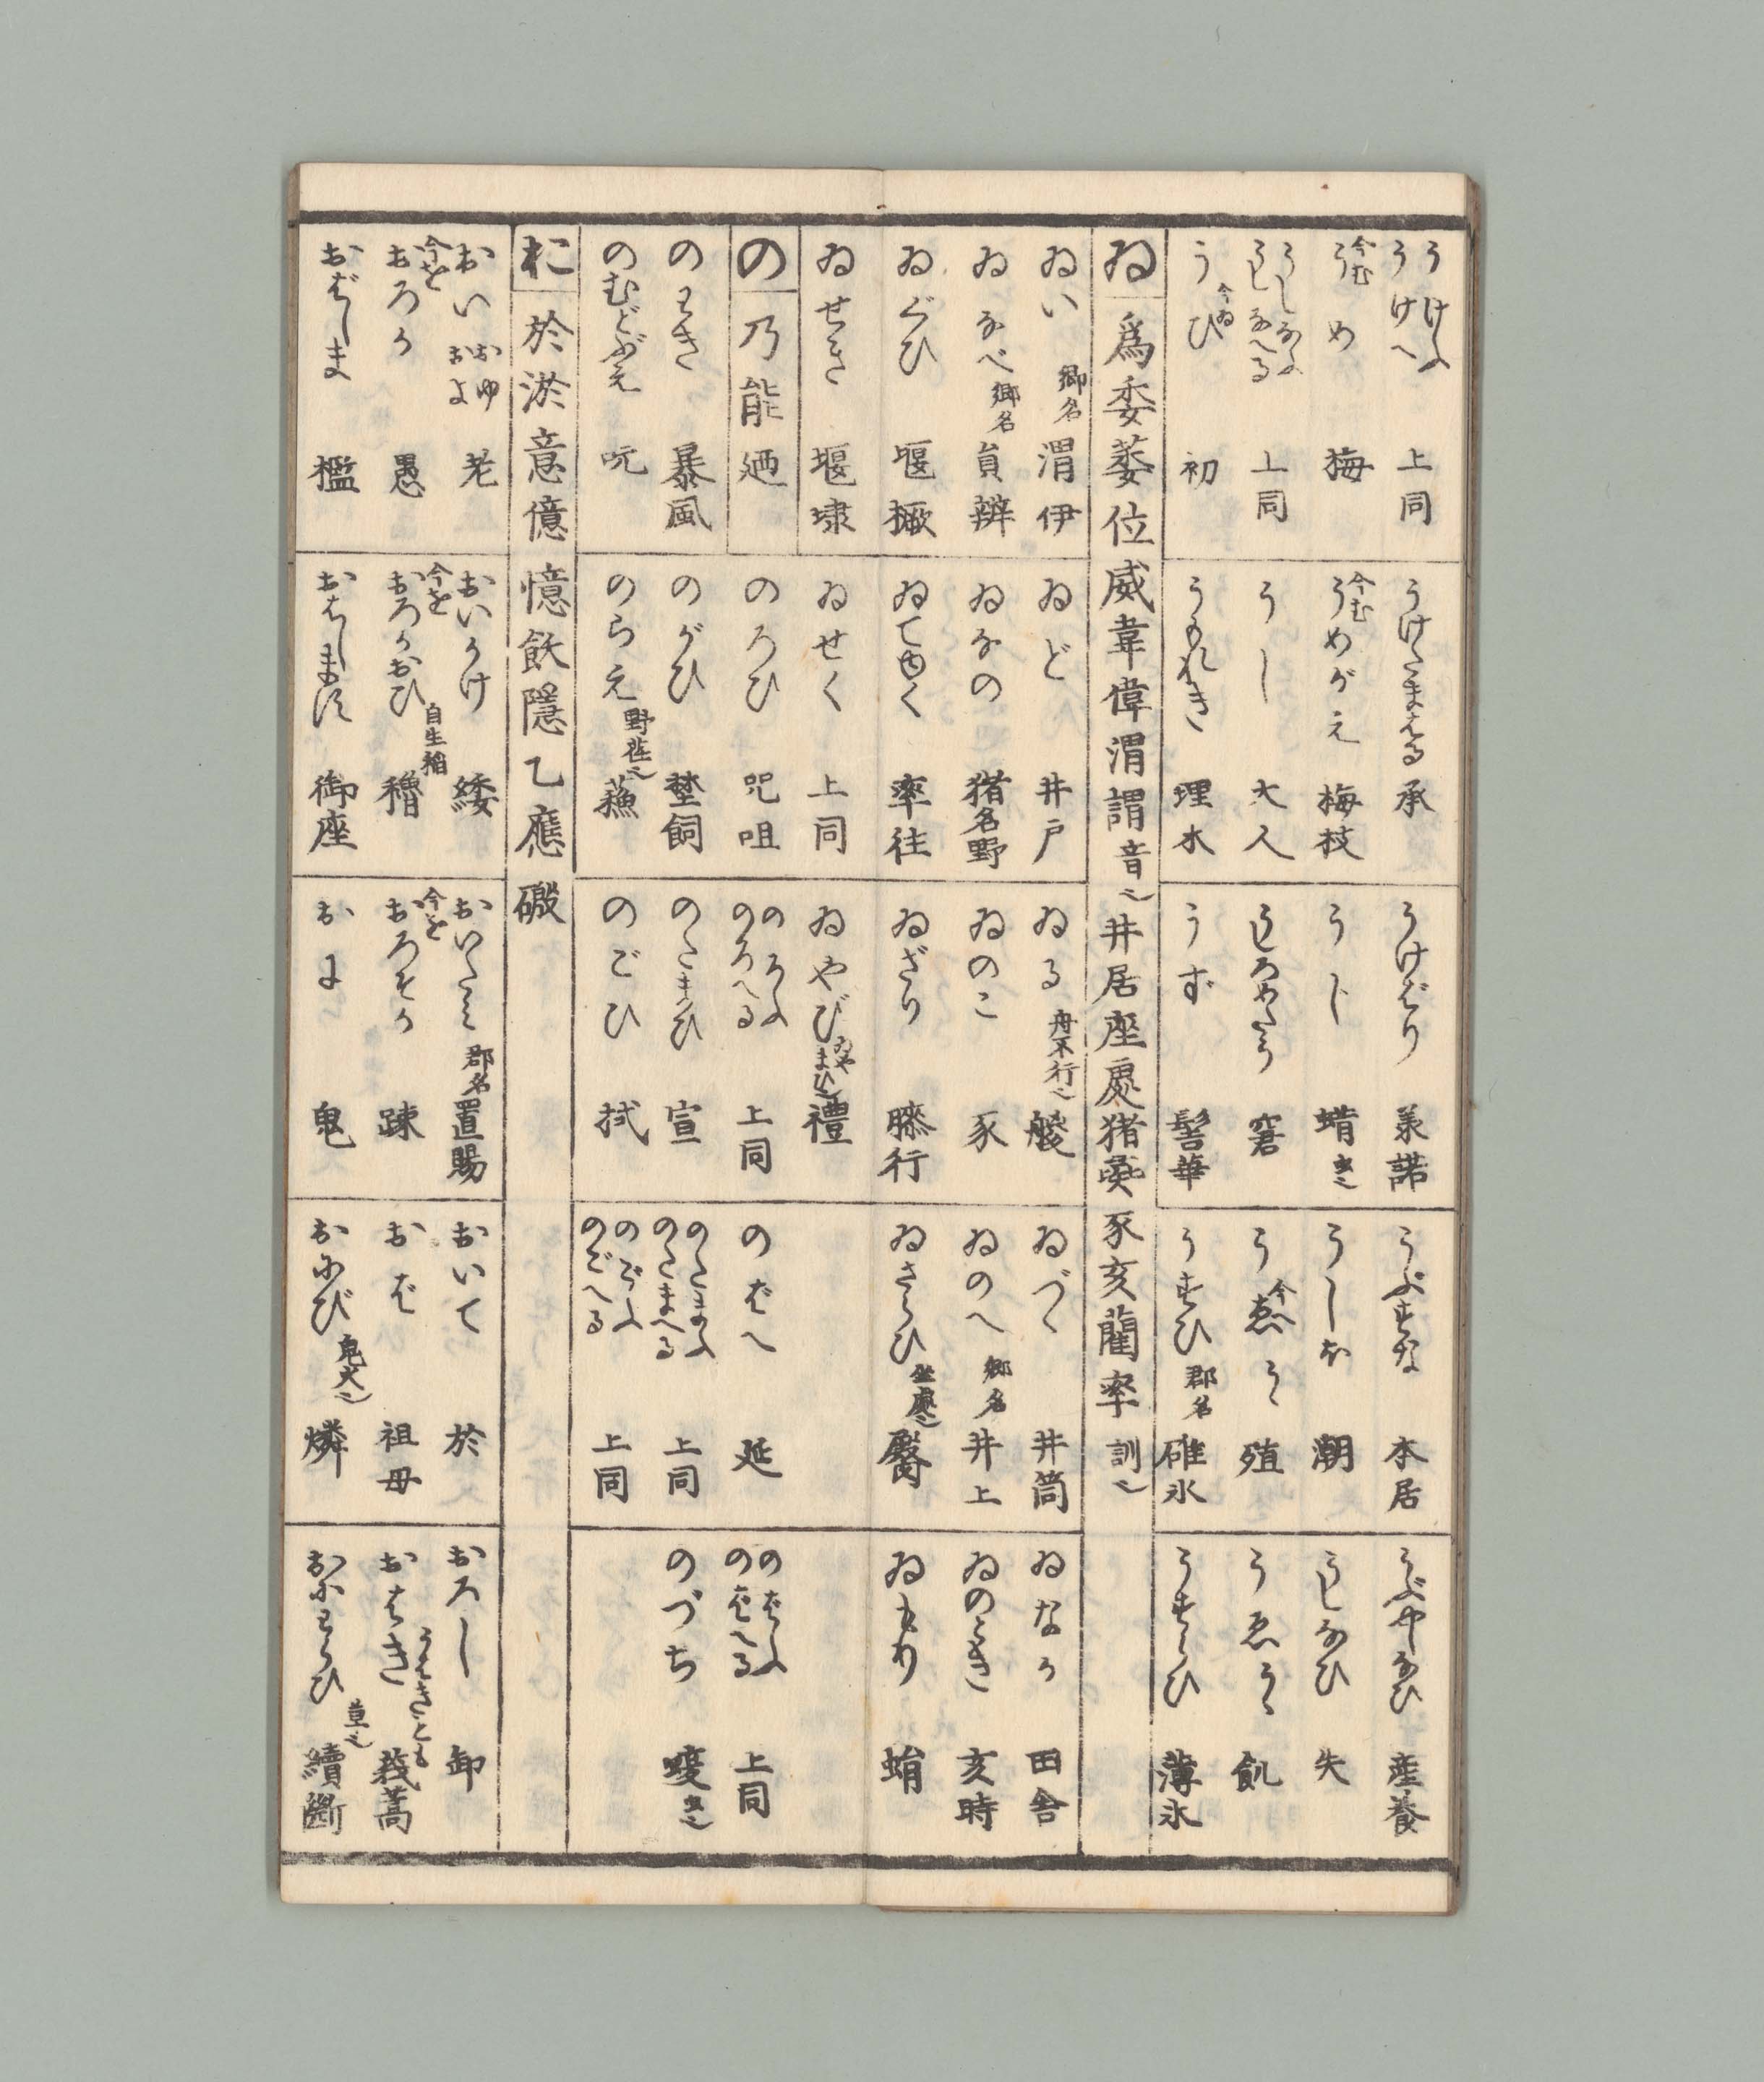 うけふ うけへ 上同
うけたまはる 承
うけばり 羕諾
うぶすな 本居
うぶやしなひ 産養
今む うめ 梅
今む うめがえ 梅枝
うじ 蜻 虫也
うしほ 潮
うしなひ 失
うしなふ うしなへる 上同
うし 大人
うしろやたう 窘
う今へゑうゝ 殖
うゑうゝ 飢
う今ゐひ 初
うもれき 埋木
うず 髻華
うすひ 郡名 碓氷
うすらひ 薄氷
ゐ 爲委萎位威韋偉渭謂 音也 井居座處猪藺豕亥藺率 訓也
ゐい 郷名 渭伊
ゐど 井戸
ゐる 舟不行也 艐
ゐづゝ 井筒
ゐなか 田舎
ゐなべ 郷名 員辨
ゐなの 猪名野
ゐのこ 豕
ゐのへ 郷名 井上
ゐのとき 亥時
ゐぐひ 堰橛
ゐてゆく 率往
ゐざり 膝行
ゐさらひ 臀
ゐもり 蜎
ゐせき 堰埭
ゐせく 上同
ゐやび ゐやまひ也 禮
の 乃能廼
のろひ 咒咀
のろふ のろへる 上同
のばへ 延
のばふ のばへる 上同
のわき 暴風
のがひ 埜飼
のたまひ 宣
のたまふ のたまへる 上同
のづち 蝮 虫也
のむどぶえ 吭
のらえ 野荏也 蘓
のごひ 拭
のごふ のごへる 上同
お 於淤意億憶飫隱乙應磤
おい おゆ およ 老
おいかけ 緌
おいたみ 郡名 置賜
おいて 於
おろし 卸
今を おろか 愚
今を おろかおひ 自生稲 穭
今を おろそか 踈
おば 祖母
おはき うはきとも 莪蒿
おばしま 檻
おはします 御座
おに 鬼
おにび 鬼火也 燐
おにわらひ 草也 續斷